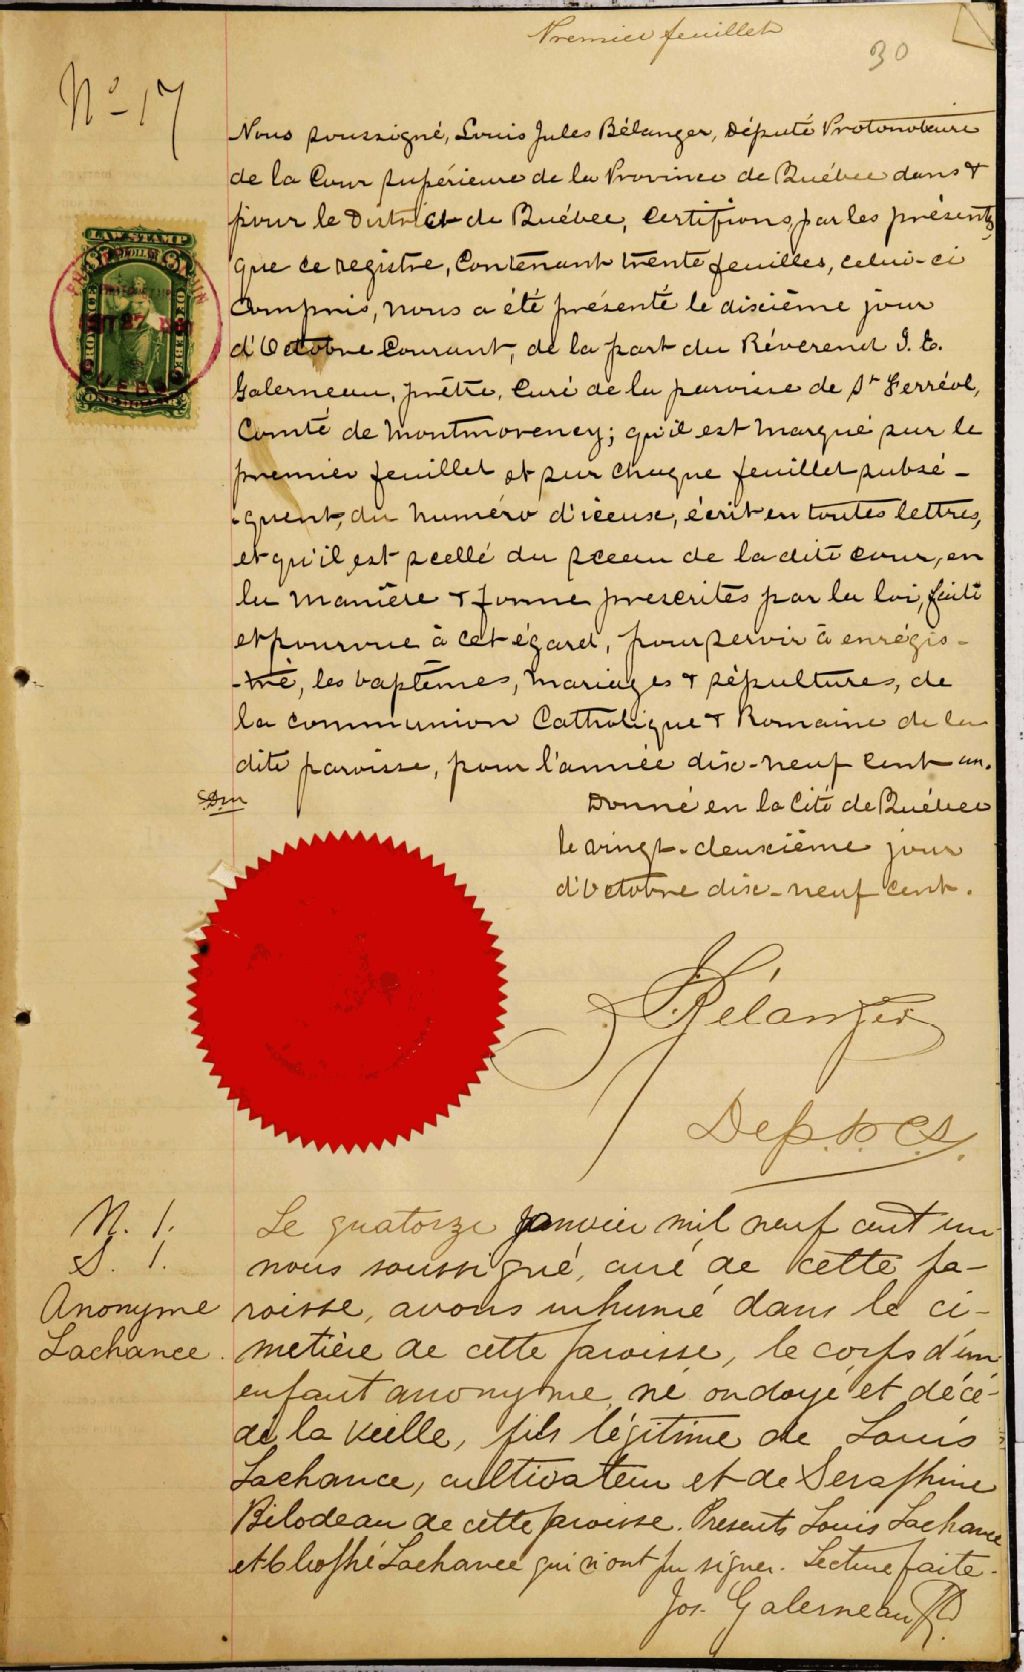 Premier feuillet
30
No 17
Nous soussigné, Louis Jules Bélanger, Député Protonotaire
de la Cour supérieure de la Province de Québec dans &
pour le District de Québec, certifions par les présentes,
que ce registre, contenant trente feuilles, celui-ci
compris, nous a été présenté le dixième jour
d'Octobre courant, de la part du Révérend J. E.
Galerneau, prêtre, Curé de la paroisse de St Ferréol,
Comté de Montmorency; qu'il est marqué sur le
premier feuillet et sur chaque feuillet subsé-
-quent, du numéro d'iceux, écrit en toutes lettres,
et qu'il est scellé du sceau de la dite cour, en
la manière & forme prescrites par la loi, faite
et pourvue à cet égard, pour servir à enrégis-
-tré, les baptêmes, mariages & sépultures, de
la communion Catholique & Romaine de la
dite paroisse, pour l'année dix-neuf cent un.
Donné en la Cité de Québec
le vingt-deuxième jour
d'Octobre dix-neuf cent.
LAW STAMP
QUEBEC
Bélanger
Dep. P. C. S.
N. 1.
S. 1.
Anonyme
Lachance.
Le quatorze janvier mil neuf cent un
nous soussigné, curé de cette pa-
roisse, avons inhumé dans le ci-
metière de cette paroisse, le corps d'un
enfant anonyme, né ondoyé et décé-
dé la veille, fils légitime de Louis
Lachance, cultivateur et de Seraphine
Bilodeau de cette paroisse. Presents Louis Lachance
et Cléophé Lachance qui n'ont pu signer. Lecture faite.
Jos. Galerneau Ptr.